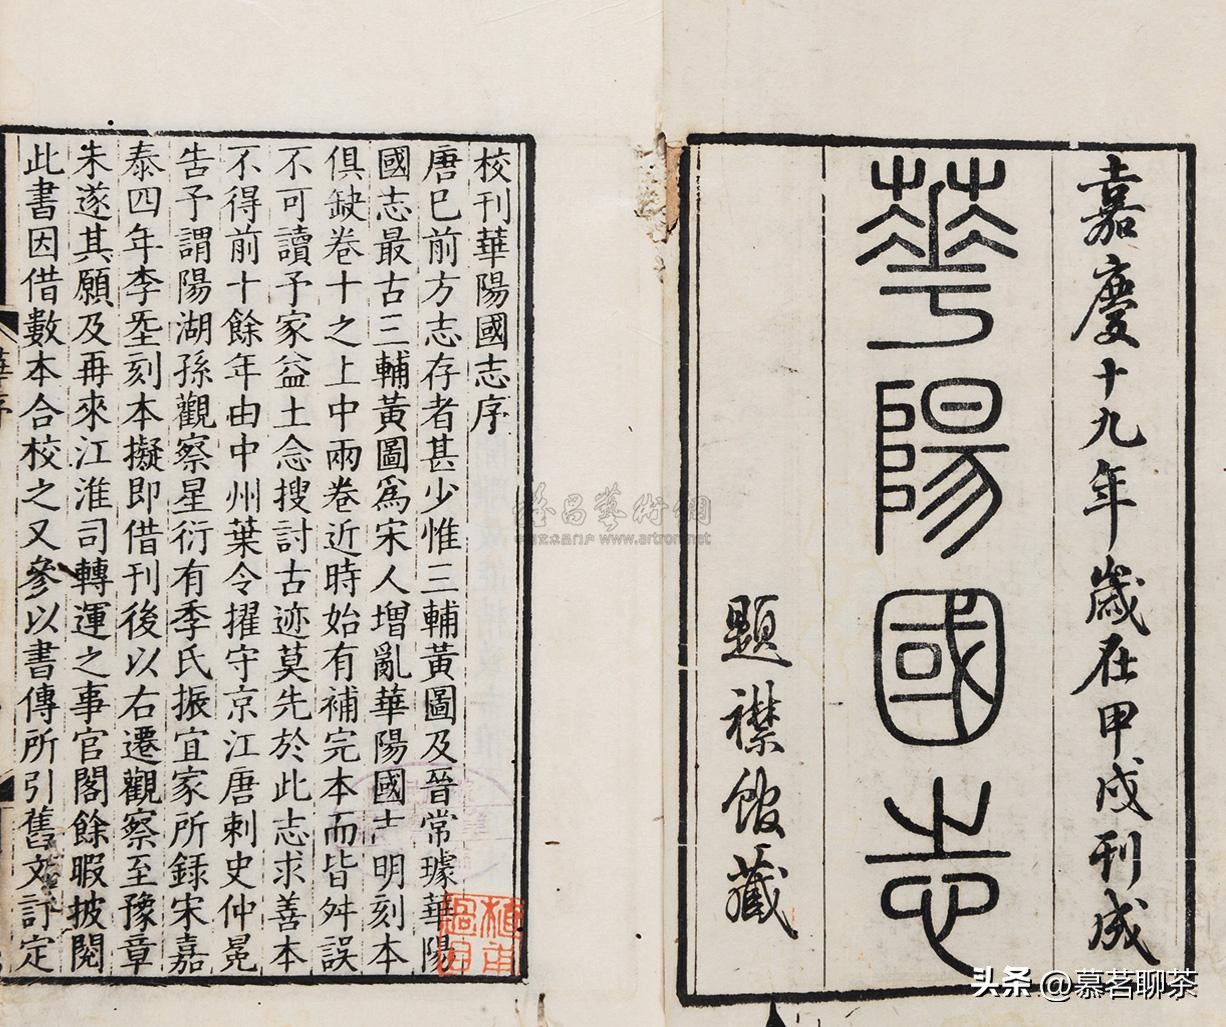 嘉慶十九年歲在甲戌刊成
華陽國志
題襟館藏
校刊華陽國志序
唐已前方志存者甚少惟三輔黃圖及晉常璩華陽
國志最古三輔黃圖爲宋人增亂華陽國志明刻本
俱缺卷十之上中兩卷近時始有補完本而皆舛誤
不可讀予家益土念搜討古迹莫先於此志求善本
不得前十餘年由中州葉令擢守京江唐刺史仲冕
告予謂陽湖孫觀察星衍有季氏振宜家所錄宋嘉
泰四年李𡊮刻本擬即借刊後以右遷觀察至豫章
未遂其願及再來江淮司轉運之事官閣餘暇披閱
此書因借數本合校之又參以書傳所引舊文訂定
華序
www.artron.net
头条 @慕茗聊茶